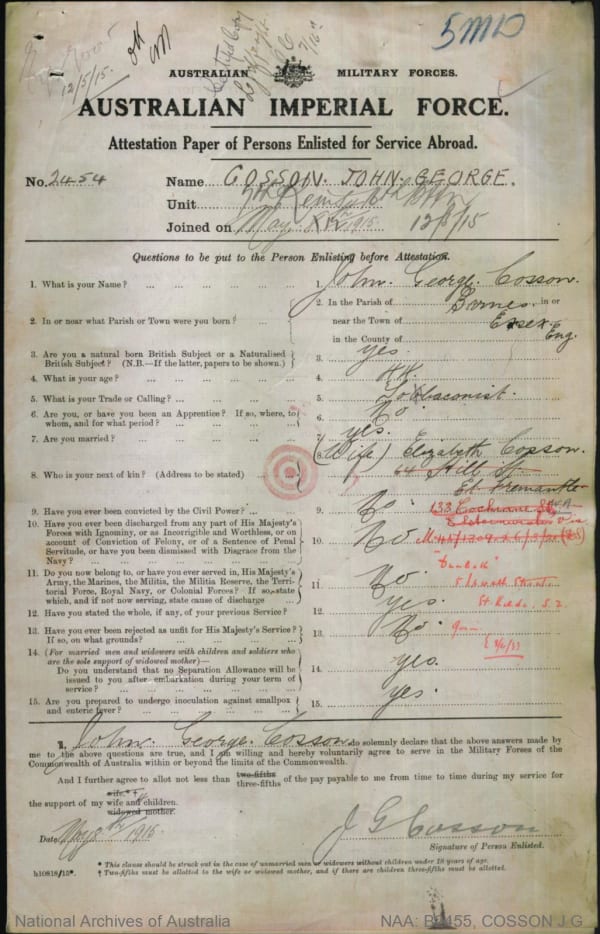 12/5/15.
5MD
Certified Copy
AUSTRALIAN MILITARY FORCES.
AUSTRALIAN IMPERIAL FORCE.
Attestation Paper of Persons Enlisted for Service Abroad.
No. 2454 Name COSSON. JOHN GEORGE.
Unit
Joined on May 1915 12/5/15
Questions to be put to the Person Enlisting before Attestation.
1. What is your Name? 1. John George Cosson.
2. In or near what Parish or Town were you born? 2. In the Parish of in or
near the Town of Essex
in the County of Eng.
3. Are you a natural born British Subject or a Naturalised
British Subject? (N.B.—If the latter, papers to be shown.) 3. yes.
4. What is your age? 4. 44.
5. What is your Trade or Calling? 5. Tobacconist.
6. Are you, or have you been an Apprentice? If so, where, to
whom, and for what period? 6. No
7. Are you married? 7. yes.
8. Who is your next of kin? (Address to be stated) 8. (Wife) Elizabeth Cosson.
64 Hill St
Et Fremantle
9. Have you ever been convicted by the Civil Power? 9. No 133 Cochrane St
10. Have you ever been discharged from any part of His Majesty's
Forces with Ignominy, or as Incorrigible and Worthless, or on
account of Conviction of Felony, or of a Sentence of Penal
Servitude, or have you been dismissed with Disgrace from the
Navy? 10. No
11. Do you now belong to, or have you ever served in, His Majesty's
Army, the Marines, the Militia, the Militia Reserve, the Terri-
torial Force, Royal Navy, or Colonial Forces? If so, state
which, and if not now serving, state cause of discharge 11. No
12. Have you stated the whole, if any, of your previous Service? 12. yes. St. Kilda, S.2.
13. Have you ever been rejected as unfit for His Majesty's Service?
If so, on what grounds? 13. No
14. (For married men and widowers with children and soldiers who
are the sole support of widowed mother)—
Do you understand that no Separation Allowance will be
issued to you after embarkation during your term of
service? 14. yes.
15. Are you prepared to undergo inoculation against smallpox
and enteric fever? 15. yes.
I, John George Cosson do solemnly declare that the above answers made by
me to the above questions are true, and I am willing and hereby voluntarily agree to serve in the Military Forces of the
Commonwealth of Australia within or beyond the limits of the Commonwealth.
And I further agree to allot not less than two-fifths
three-fifths of the pay payable to me from time to time during my service for
the support of my wife*†
wife and children.
widowed mother.
Date May 1915 J G Cosson
Signature of Person Enlisted.
b10818/15*. * This clause should be struck out in the case of unmarried men or widowers without children under 18 years of age.
† Two-fifths must be allotted to the wife or widowed mother, and if there are children three-fifths must be allotted.
National Archives of Australia NAA: B2455, COSSON J G